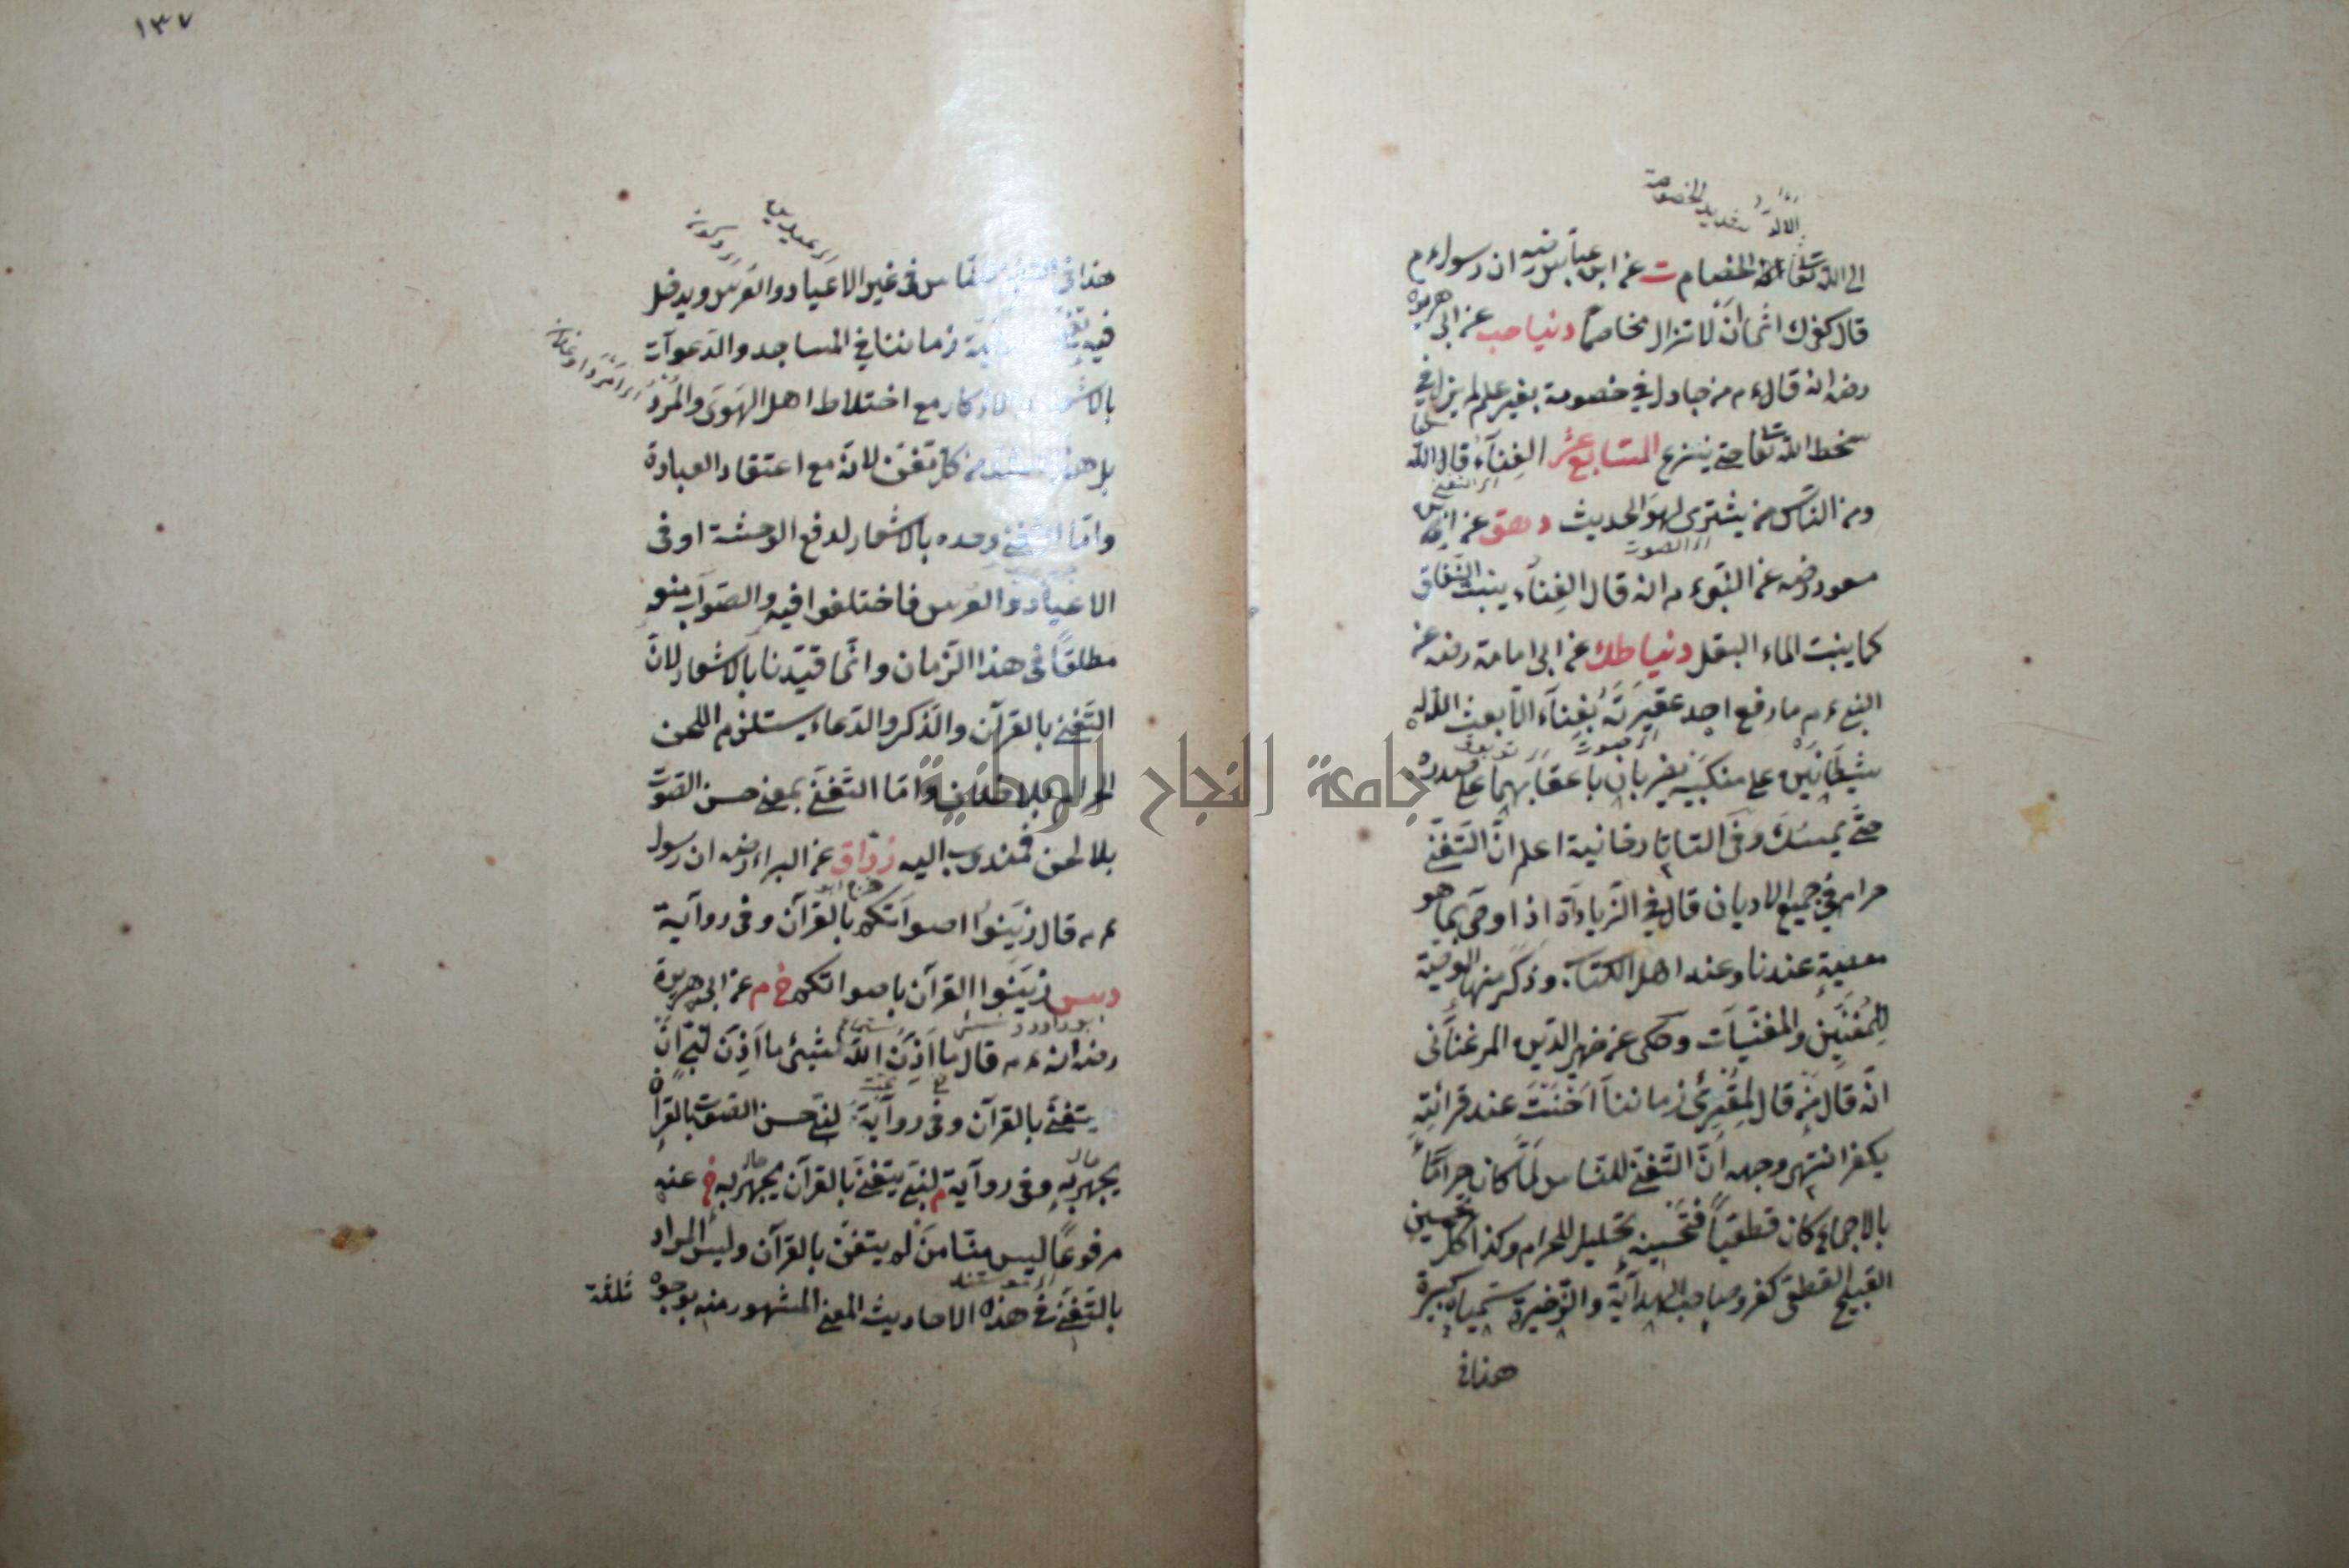 الى الله تعالى الالد الخصام ت عن ابن عباس رضه ان رسول ءم
قال كفى بك اثما ان لا تزال مخاصما دنيا صب عن ابى هريرة
رضه انه قال ءم من جادل فى خصومة بغير علم لم يزل فى
سخط الله تعا حتى ينزع السابع عشر الغناء قال الله تعا
ومن الناس من يشترى لهو الحديث د هق عن ابن
مسعود رضه عن النبى ءم انه قال الغناء ينبت النفاق
كما ينبت الماء البقل دنيا طك عن ابى امامة رضه عن
النبى ءم ما رفع احد عقيرته بغناء الا بعث الله له
شيطانين على منكبيه يضربان باعقابهما على صدره
حتى يمسك وفى التاتارخانية اعلم ان التغنى
حرام فى جميع الاديان قال فى الزيادات اذا اوصى بما هو
معصية عندنا وعند اهل الكتاب وذكر منها الوصية
للمغنين والمغنيات وحكى عن ظهير الدين المرغنانى
انه قال من قال لمقرئ زماننا احسنت عند قرائته
يكفر انتهى وجهه ان التغنى للناس لما كان حراما
بالاجماع كان قطعيا فتحسينه تحليل للحرام وكذا كل تحسين
القبيح القطعى كفر وصاحب الهداية والذخيرة سمياه كبيرة
هذا فى
١٣٧
هذا فى التغنى للناس فى غير الاعياد والعرس ويدخل
فيه زماننا فى المساجد والدعوات
بالاشعار والاذكار مع اختلاط اهل الهوى والمرد
بل هذا اشد من كل تغن لانه مع اعتقاد العبادة
واما التغنى وحده بالاشعار لدفع الوحشة او فى
الاعياد والعرس فاختلفوا فيه والصواب منعه
مطلقا فى هذا الزمان وانما قيدنا بالاشعار لان
التغنى بالقرآن والذكر والدعاء يستلزم اللحن
الحرام بلا خلاف واما التغنى بمعنى حسن الصوت
بلا لحن فمندوب اليه رزاق عن البراء رضه ان رسول
ءم قال زينوا اصواتكم بالقرآن وفى رواية
دس زينوا القرآن باصواتكم خ م عن ابى هريرة
رضه انه ءم قال ما اذن الله لشئ ما اذن لنبى ان
يتغنى بالقرآن وفى رواية لنبى حسن الصوت بالقرآن
يجهر به وفى رواية م لنبى يتغنى بالقرآن يجهر به خ عنه
مرفوعا ليس منا من لم يتغن بالقرآن وليس المراد
بالتغنى فى هذه الاحاديث المعنى المشهور منه بوجوه ثلثة
جامعة النجاح الوطنية